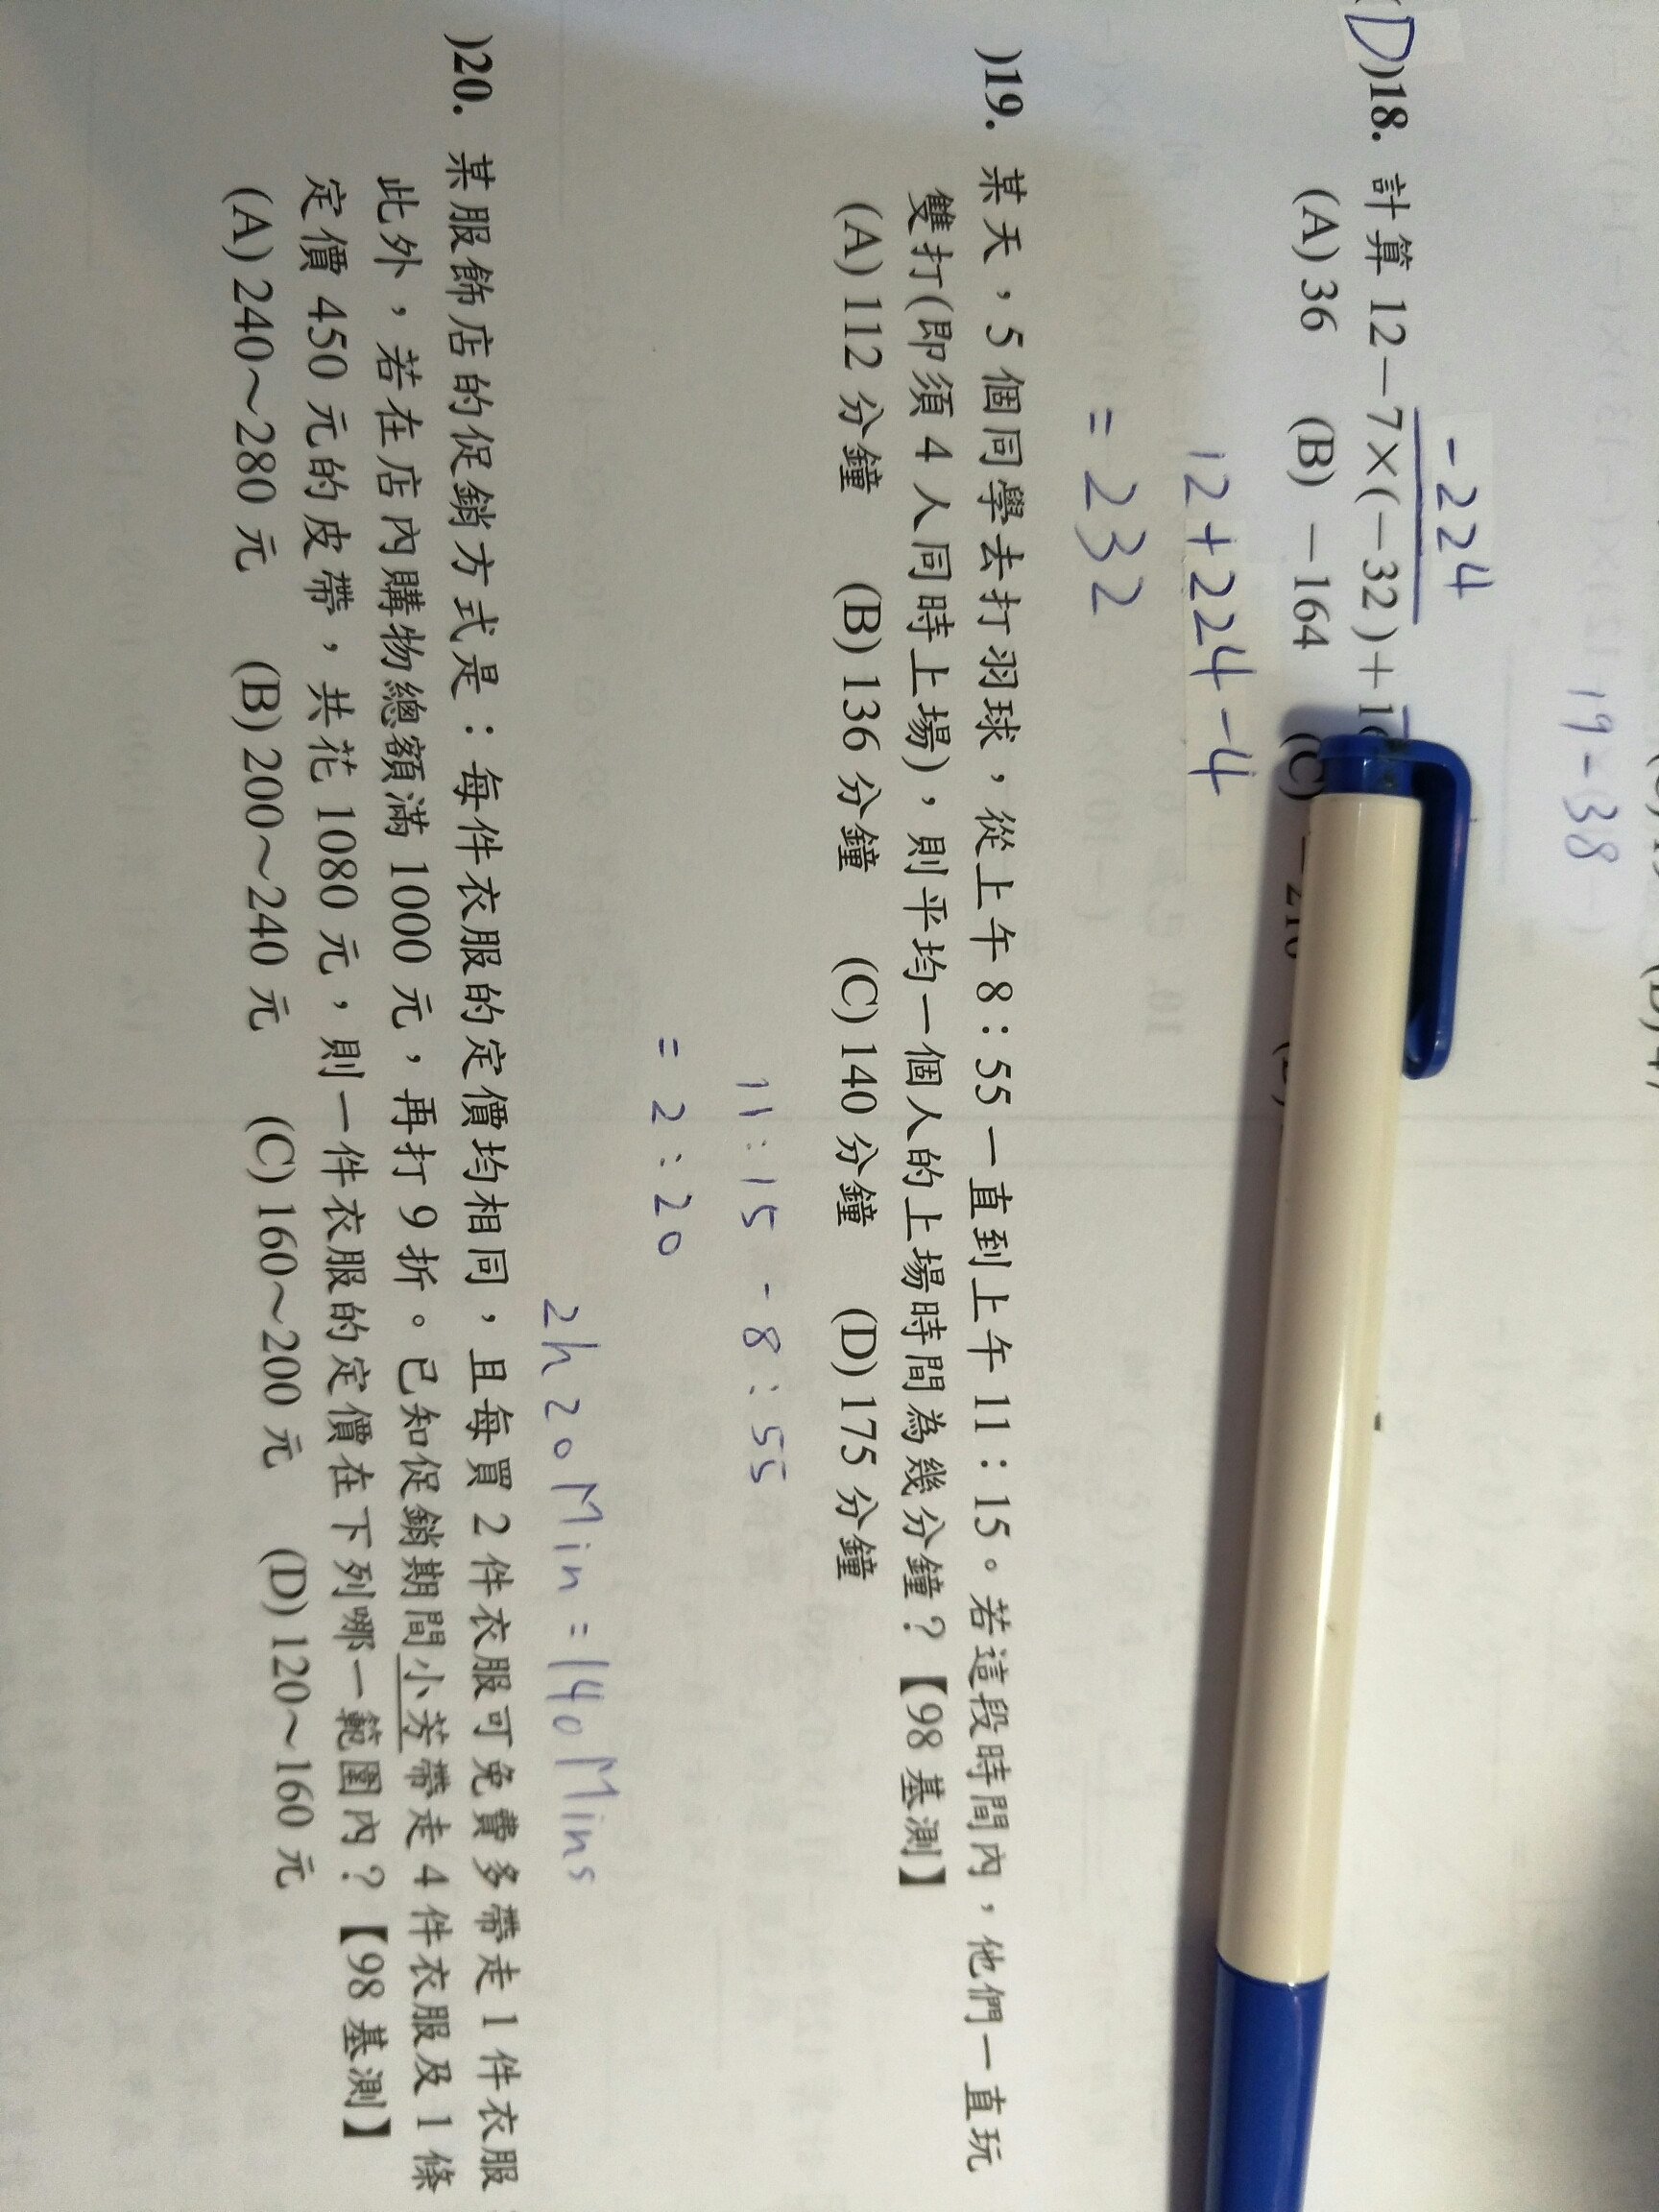 19-38
(D)18. 計算 12－7×(－32)＋1
-224
(A) 36 (B) －164 (C)
12+224-4
=232
)19. 某天，5 個同學去打羽球，從上午 8：55 一直到上午 11：15。若這段時間內，他們一直玩
雙打(即須 4 人同時上場)，則平均一個人的上場時間為幾分鐘？【98 基測】
(A) 112 分鐘 (B) 136 分鐘 (C) 140 分鐘 (D) 175 分鐘
11:15 - 8:55
= 2:20
2h 20 Min = 140 Mins
)20. 某服飾店的促銷方式是：每件衣服的定價均相同，且每買 2 件衣服可免費多帶走 1 件衣服
此外，若在店內購物總額滿 1000 元，再打 9 折。已知促銷期間小芳帶走 4 件衣服及 1 條
定價 450 元的皮帶，共花 1080 元，則一件衣服的定價在下列哪一範圍內？【98 基測】
(A) 240～280 元 (B) 200～240 元 (C) 160～200 元 (D) 120～160 元